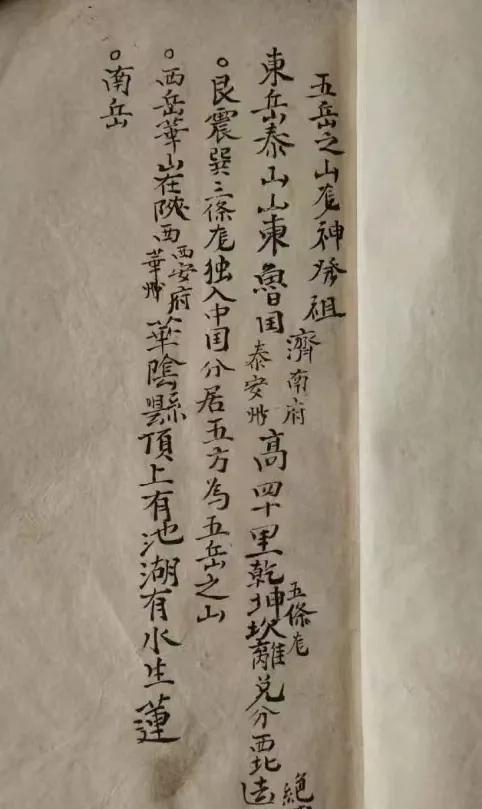 五岳之山龙神發祖
東岳泰山山東魯囯濟南府泰安州高四十里乾坤坎離五條龙兑分西北
。艮震巽三條龙独入中囯分居五方為五岳之山
。西岳華山在陝西西安府華州華陰縣頂上有池湖有水生蓮
。南岳